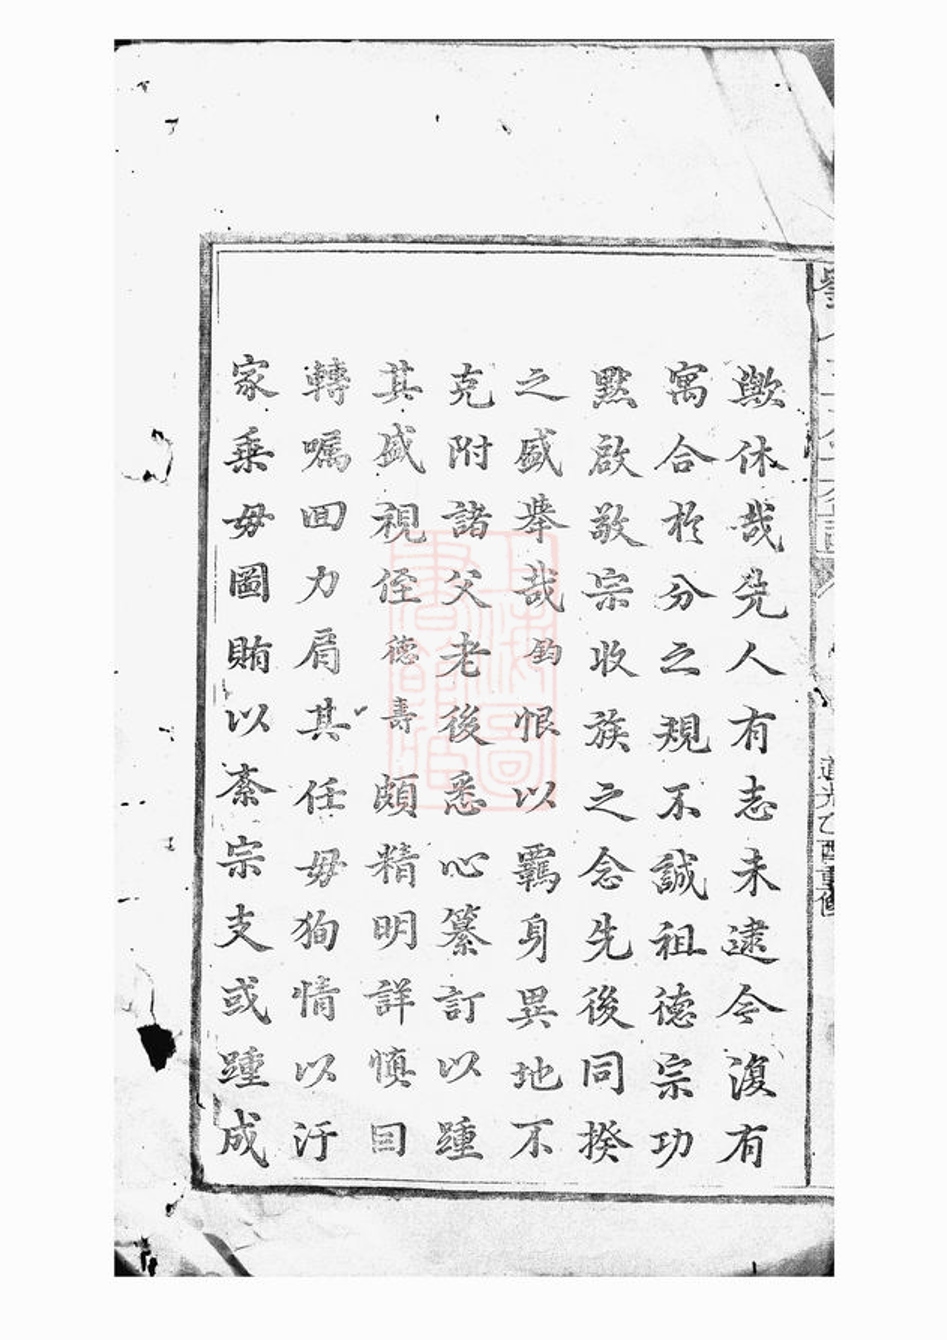 歟休哉先人有志未逮今復有
寓合於分之規不誠祖德宗功
默啟敬宗收族之念先後同揆
之盛舉哉鈞恨以羈身異地不
克附諸父老後悉心纂訂以踵
其盛視侄德壽頗精明詳慎因
轉囑回力肩其任毋狥情以汙
家乗毋圖賄以紊宗支或踵成
道光乙酉重修